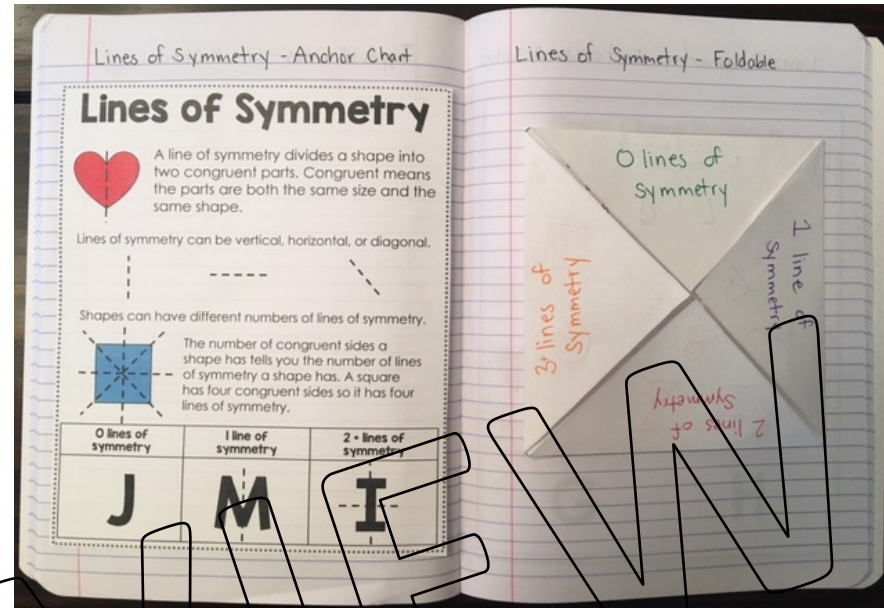 Lines of Symmetry - Anchor Chart
Lines of Symmetry
A line of symmetry divides a shape into
two congruent parts. Congruent means
the parts are both the same size and the
same shape.
Lines of symmetry can be vertical, horizontal, or diagonal.
Shapes can have different numbers of lines of symmetry.
The number of congruent sides a
shape has tells you the number of lines
of symmetry a shape has. A square
has four congruent sides so it has four
lines of symmetry.
0 lines of
symmetry
1 line of
symmetry
2+ lines of
symmetry
J
M
I
Lines of Symmetry - Foldable
0 lines of
symmetry
1 line of
symmetry
2 lines of
symmetry
3+ lines of
symmetry